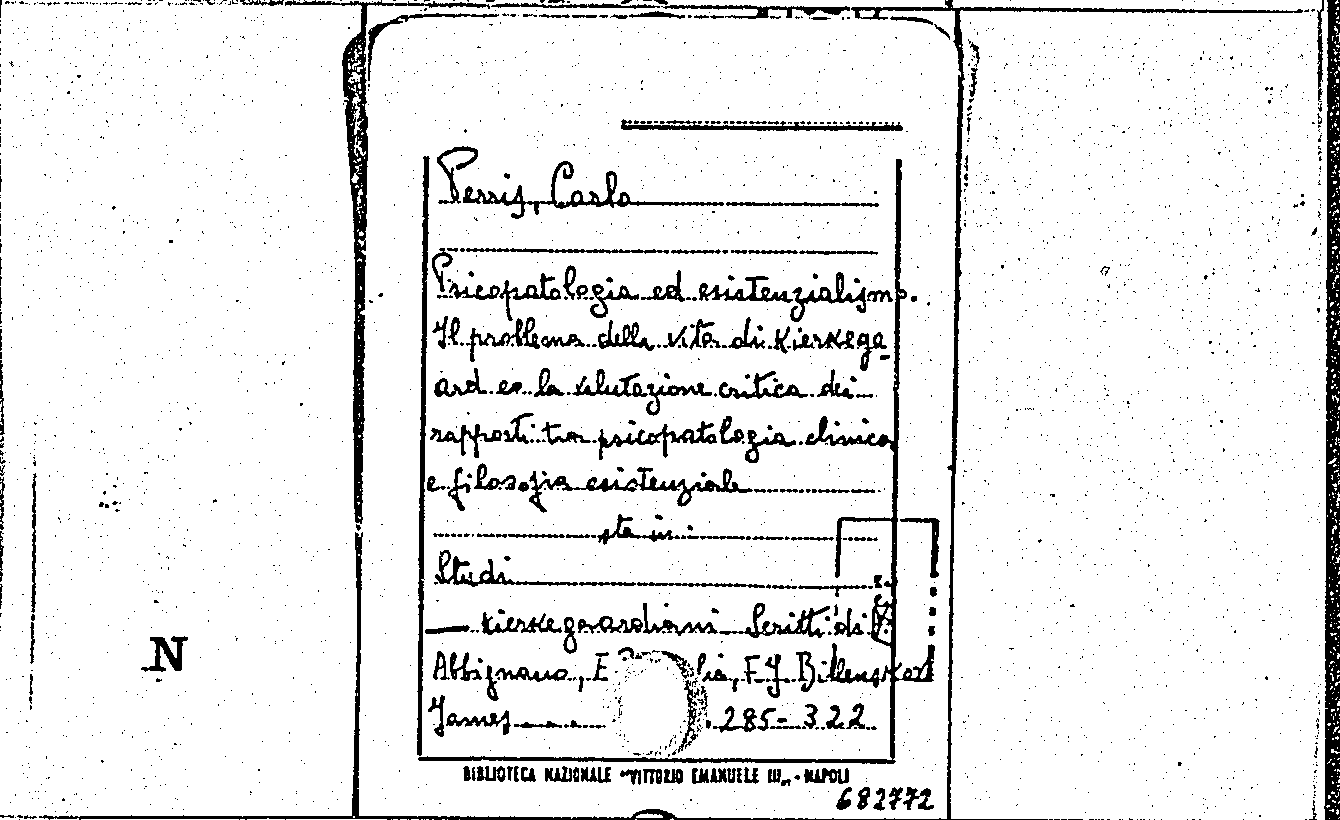 Perris, Carlo
Psicopatologia ed esistenzialismo.
Il problema della vita di Kierkega-
ard e la valutazione critica dei
rapporti tra psicopatologia clinica
e filosofia esistenziale
sta in:
Studi
— Kierkegaardiani Scritti di
Abbignano, E lia, F.J. Billenskov
James . . . 285-322
BIBLIOTECA NAZIONALE "VITTORIO EMANUELE III„ - NAPOLI
682772
N